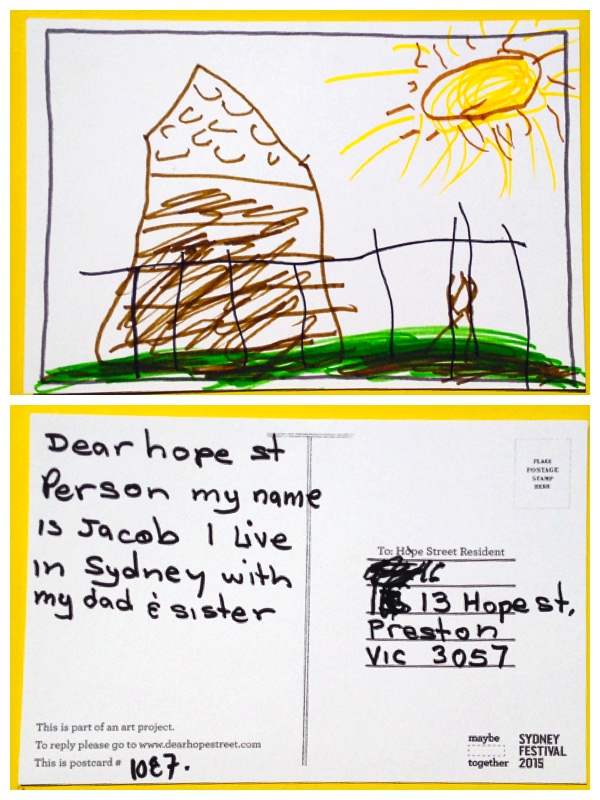 Dear hope st
Person my name
is Jacob I Live
in Sydney with
my dad & sister
This is part of an art project.
To reply please go to www.dearhopestreet.com
This is postcard # 1087.
PLACE
POSTAGE
STAMP
HERE
To: Hope Street Resident
13 Hope st,
Preston
Vic 3057
maybe
together
SYDNEY
FESTIVAL
2015